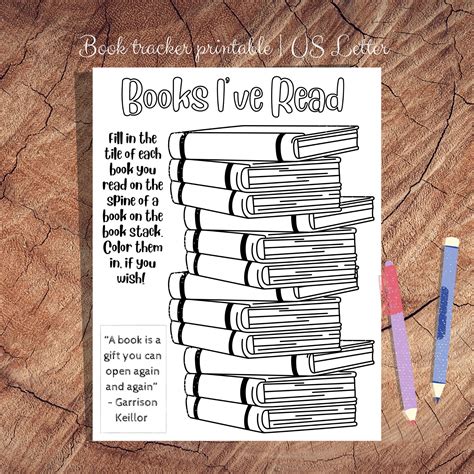 Book tracker printable | US Letter
Books I've Read
Fill in the
tile of each
book you
read on the
spine of a
book on the
book stack.
Color them
in, if you
wish!
"A book is a
gift you can
open again
and again"
- Garrison
Keillor